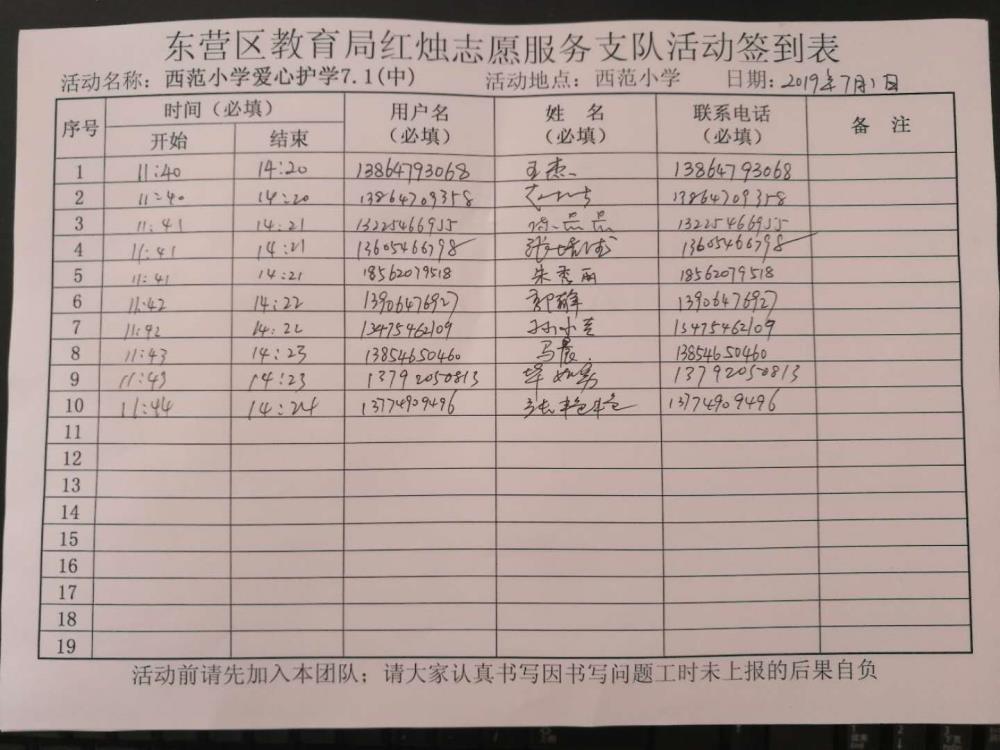 东营区教育局红烛志愿服务支队活动签到表
活动名称: 西范小学爱心护学7.1(中) 活动地点: 西范小学 日期: 2019年7月1日
序号 时间（必填） 用户名（必填） 姓 名（必填） 联系电话（必填） 备 注
开始 结束
1 11:40 14:20 13864793068 王杰 13864793068
2 11:40 14:20 13864709358 13864709358
3 11:41 14:21 13225466955 陈晶晶 13225466955
4 11:41 14:21 13605466798 13605466798
5 11:41 14:21 18562079518 朱秀丽 18562079518
6 11:42 14:22 13906476927 郭静 13906476927
7 11:42 14:22 13475462109 13475462109
8 11:43 14:23 13854650460 马晨 13854650460
9 11:43 14:23 13792050813 13792050813
10 11:44 14:24 13774909496 张艳艳 13774909496
11
12
13
14
15
16
17
18
19
活动前请先加入本团队；请大家认真书写因书写问题工时未上报的后果自负